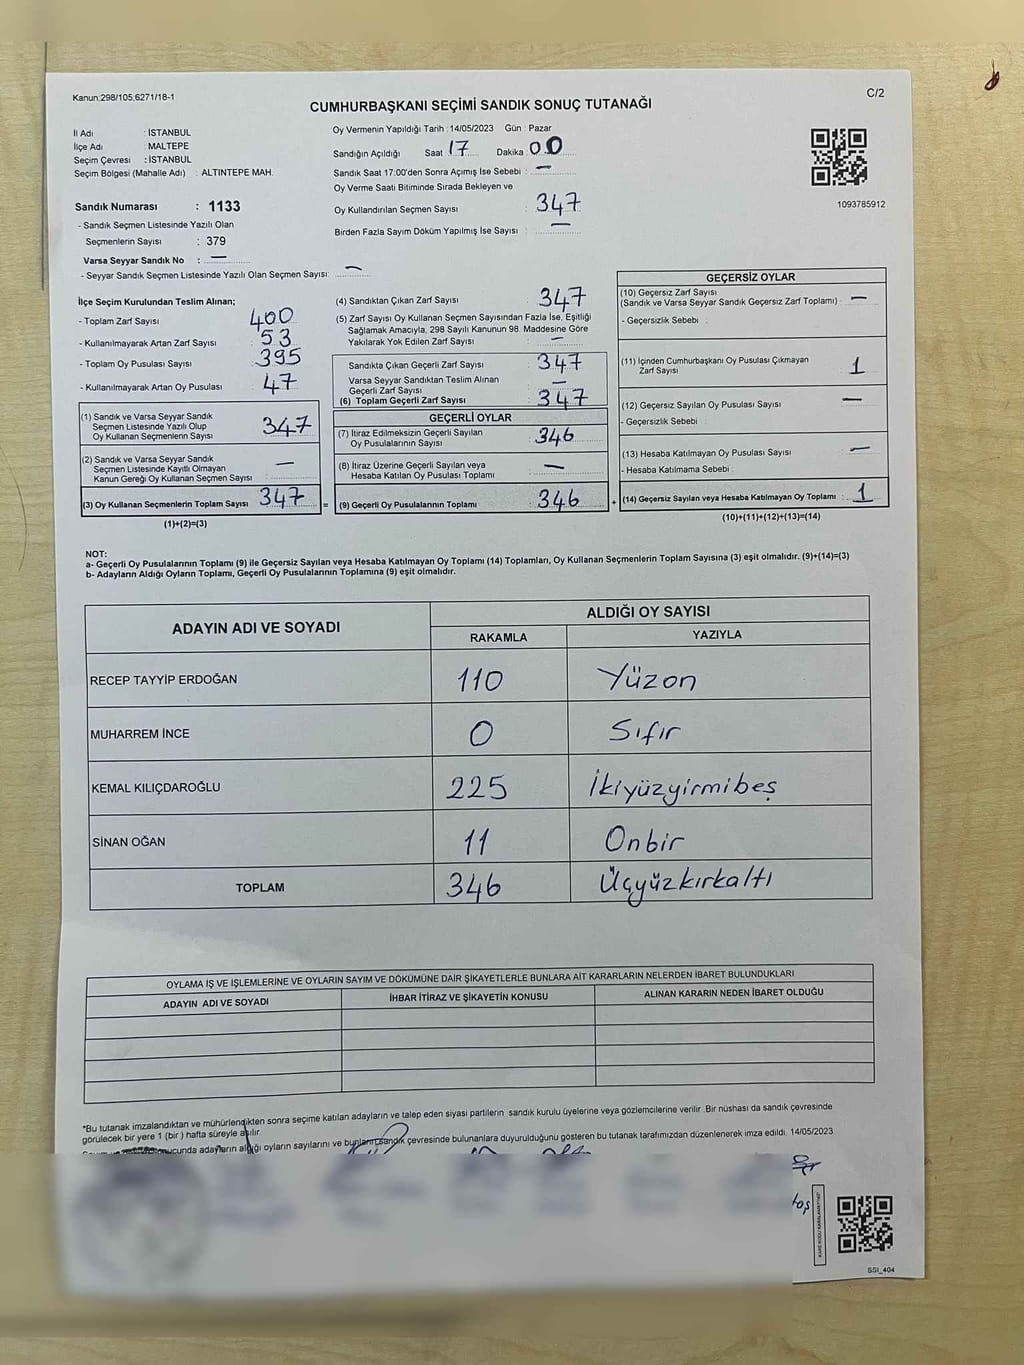 Kanun,298/105,6271/18-1
C/2
CUMHURBAŞKANI SEÇİMİ SANDIK SONUÇ TUTANAĞI
İl Adı : İSTANBUL
İlçe Adı : MALTEPE
Seçim Çevresi : İSTANBUL
Seçim Bölgesi (Mahalle Adı) : ALTINTEPE MAH.
Sandık Numarası : 1133
- Sandık Seçmen Listesinde Yazılı Olan
Seçmenlerin Sayısı : 379
Varsa Seyyar Sandık No : —
- Seyyar Sandık Seçmen Listesinde Yazılı Olan Seçmen Sayısı: —
Oy Vermenin Yapıldığı Tarih : 14/05/2023 Gün : Pazar
Sandığın Açıldığı Saat 17 Dakika 00
Sandık Saat 17:00'den Sonra Açımış İse Sebebi : —
Oy Verme Saati Bitiminde Sırada Bekleyen ve
Oy Kullandırılan Seçmen Sayısı : 347
Birden Fazla Sayım Döküm Yapılmış İse Sayısı : —
1093785912
İlçe Seçim Kurulundan Teslim Alınan;
- Toplam Zarf Sayısı 400
- Kullanılmayarak Artan Zarf Sayısı : 53
- Toplam Oy Pusulası Sayısı : 395
- Kullanılmayarak Artan Oy Pusulası : 47
(1) Sandık ve Varsa Seyyar Sandık
Seçmen Listesinde Yazılı Olup
Oy Kullanan Seçmenlerin Sayısı : 347
(2) Sandık ve Varsa Seyyar Sandık
Seçmen Listesinde Kayıtlı Olmayan
Kanun Gereği Oy Kullanan Seçmen Sayısı : —
(3) Oy Kullanan Seçmenlerin Toplam Sayısı : 347 =
(1)+(2)=(3)
(4) Sandıktan Çıkan Zarf Sayısı : 347
(5) Zarf Sayısı Oy Kullanan Seçmen Sayısından Fazla İse, Eşitliği
Sağlamak Amacıyla, 298 Sayılı Kanunun 98. Maddesine Göre
Yakılarak Yok Edilen Zarf Sayısı : —
Sandıkta Çıkan Geçerli Zarf Sayısı : 347
Varsa Seyyar Sandıktan Teslim Alınan
Geçerli Zarf Sayısı : —
(6) Toplam Geçerli Zarf Sayısı : 347
GEÇERLİ OYLAR
(7) İtiraz Edilmeksizin Geçerli Sayılan
Oy Pusulalarının Sayısı : 346
(8) İtiraz Üzerine Geçerli Sayılan veya
Hesaba Katılan Oy Pusulası Toplamı : —
(9) Geçerli Oy Pusulalarının Toplamı : 346 +
GEÇERSİZ OYLAR
(10) Geçersiz Zarf Sayısı
(Sandık ve Varsa Seyyar Sandık Geçersiz Zarf Toplamı) : —
- Geçersizlik Sebebi :
(11) İçinden Cumhurbaşkanı Oy Pusulası Çıkmayan
Zarf Sayısı : 1
(12) Geçersiz Sayılan Oy Pusulası Sayısı : —
- Geçersizlik Sebebi :
(13) Hesaba Katılmayan Oy Pusulası Sayısı : —
- Hesaba Katılmama Sebebi :
(14) Geçersiz Sayılan veya Hesaba Katılmayan Oy Toplamı : 1
(10)+(11)+(12)+(13)=(14)
NOT:
a- Geçerli Oy Pusulalarının Toplamı (9) ile Geçersiz Sayılan veya Hesaba Katılmayan Oy Toplamı (14) Toplamları, Oy Kullanan Seçmenlerin Toplam Sayısına (3) eşit olmalıdır. (9)+(14)=(3)
b- Adayların Aldığı Oyların Toplamı, Geçerli Oy Pusulalarının Toplamına (9) eşit olmalıdır.
ADAYIN ADI VE SOYADI ALDIĞI OY SAYISI
RAKAMLA YAZIYLA
RECEP TAYYİP ERDOĞAN 110 Yüzon
MUHARREM İNCE 0 Sıfır
KEMAL KILIÇDAROĞLU 225 İkiyüzyirmibeş
SİNAN OĞAN 11 Onbir
TOPLAM 346 Üçyüzkırkaltı
OYLAMA İŞ VE İŞLEMLERİNE VE OYLARIN SAYIM VE DÖKÜMÜNE DAİR ŞİKAYETLERLE BUNLARA AİT KARARLARIN NELERDEN İBARET BULUNDUKLARI
ADAYIN ADI VE SOYADI İHBAR İTİRAZ VE ŞİKAYETİN KONUSU ALINAN KARARIN NEDEN İBARET OLDUĞU
*Bu tutanak imzalandıktan ve mühürlendikten sonra seçime katılan adayların ve talep eden siyasi partilerin sandık kurulu üyelerine veya gözlemcilerine verilir .Bir nüshası da sandık çevresinde
görülecek bir yere 1 (bir ) hafta süreyle asılır.
adayların aldığı oyların sayılarını ve bunların sandık çevresinde bulunanlara duyurulduğunu gösteren bu tutanak tarafımızdan düzenlenerek imza edildi. 14/05/2023
SSI_404